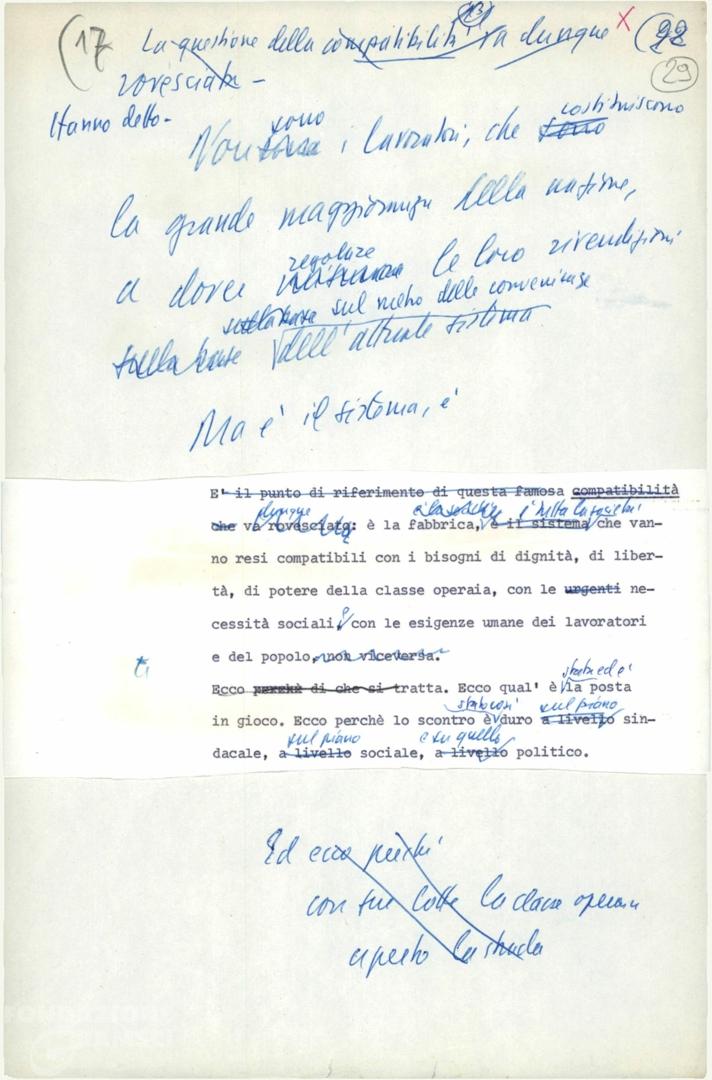 (17 La questione della compatibilità (13) va dunque x (92
rovesciata - 29
Hanno detto -
sono costituiscono
Non i lavoratori, che sono
la grande maggioranza della nazione,
regolare
a dover misurare le loro rivendicazioni
sulla base sul metro delle convenienze
sulla base dell'attuale sistema
Ma è il sistema, è
E' il punto di riferimento di questa famosa compatibilità
dunque è la società è tutta la società
che va rovesciato: è la fabbrica, è il sistema che van-
no resi compatibili con i bisogni di dignità, di liber-
tà, di potere della classe operaia, con le urgenti ne-
e
cessità sociali, con le esigenze umane dei lavoratori
e del popolo, non viceversa.
stata ed è
Ecco perchè di che si tratta. Ecco qual' è la posta
stato così sul piano
in gioco. Ecco perchè lo scontro è duro a livello sin-
sul piano e su quello
dacale, a livello sociale, a livello politico.
Ed ecco perché
con sue lotte la classe operaia
aperto la strada